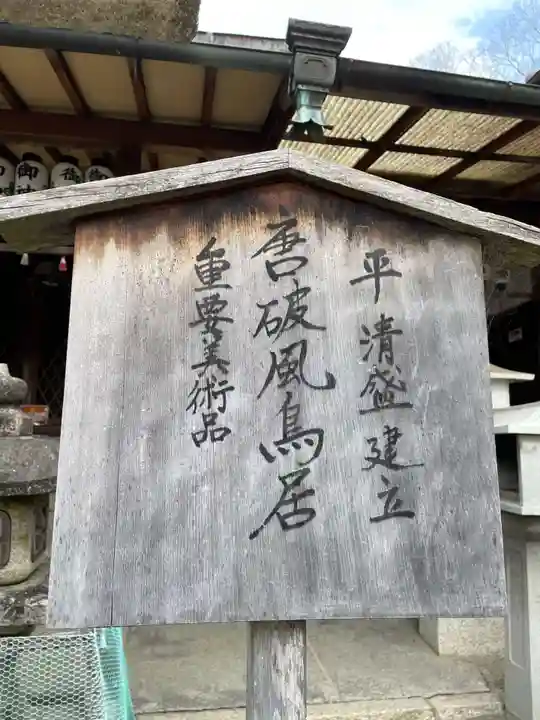 平清盛建立
唐破風鳥居
重要美術品
御神